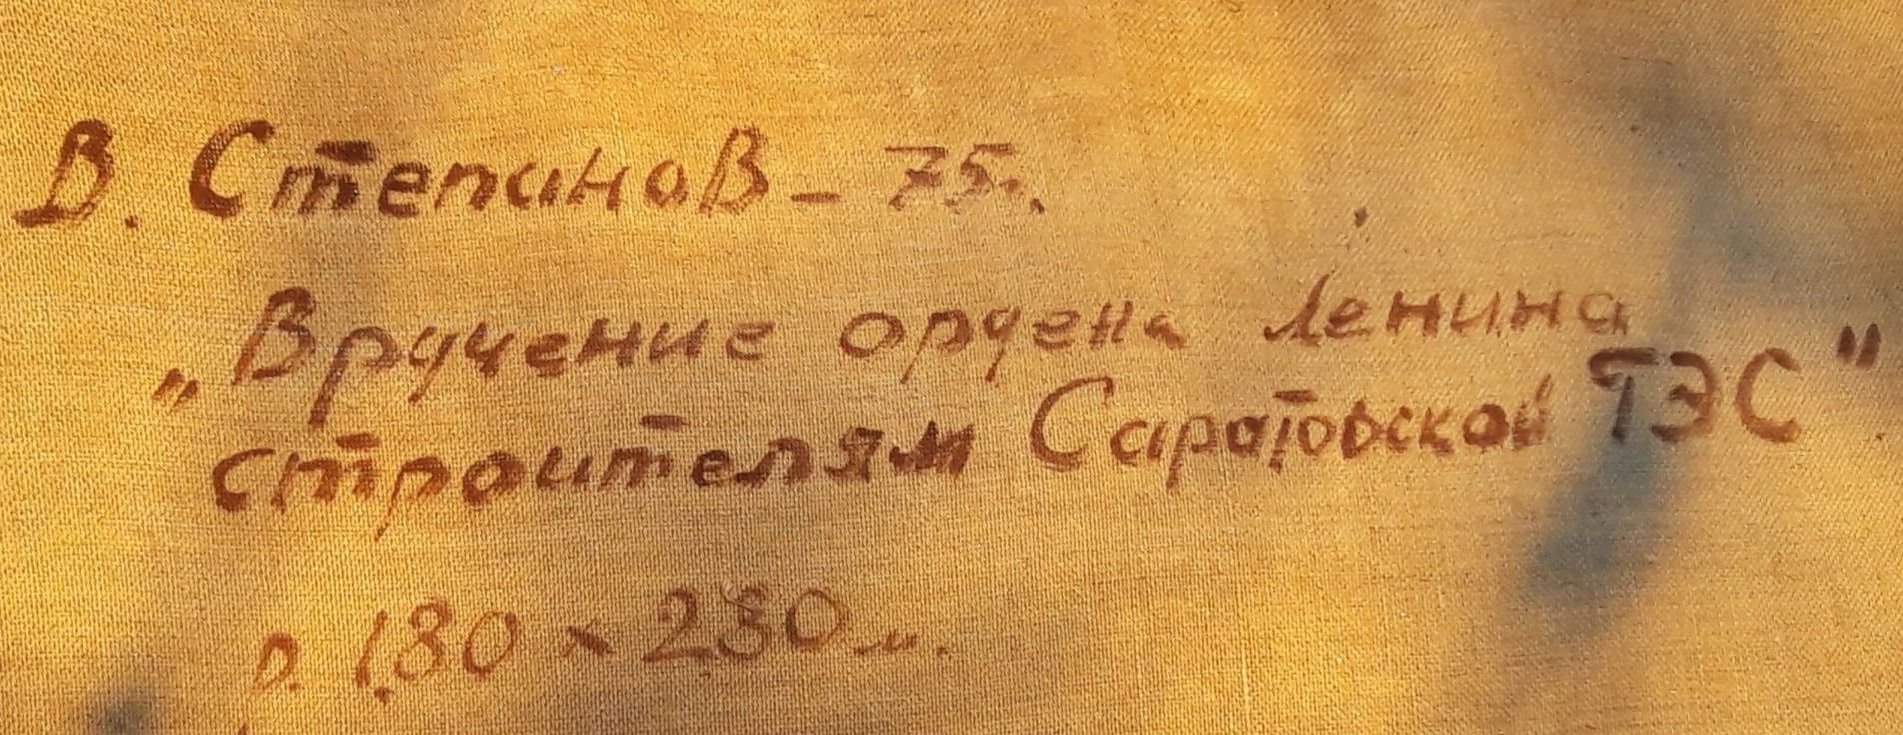 В. Степанов – 75г.
„Вручение ордена Ленина
строителям Саратовской ТЭС"
р. 1,80 × 2,30 м.